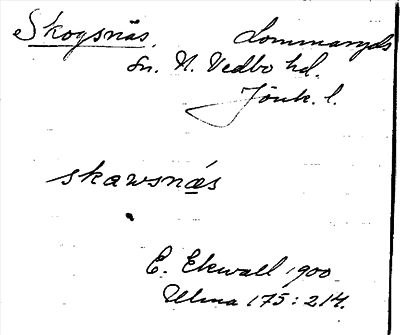 Skogsnäs. Lommaryds
Sn. N. Vedbo hd.
Jönk. l.
skawsnæs
E. Ekwall 1900
Ulma 175:214.